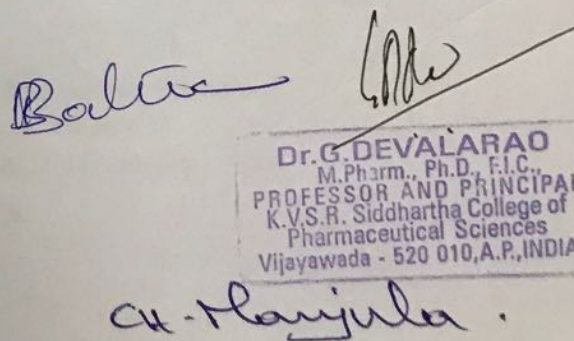 Dr.G.DEVALARAO
M.Pharm., Ph.D., F.I.C.,
PROFESSOR AND PRINCIPAL
K.V.S.R. Siddhartha College of
Pharmaceutical Sciences
Vijayawada - 520 010,A.P.,INDIA
CH-Manjula.